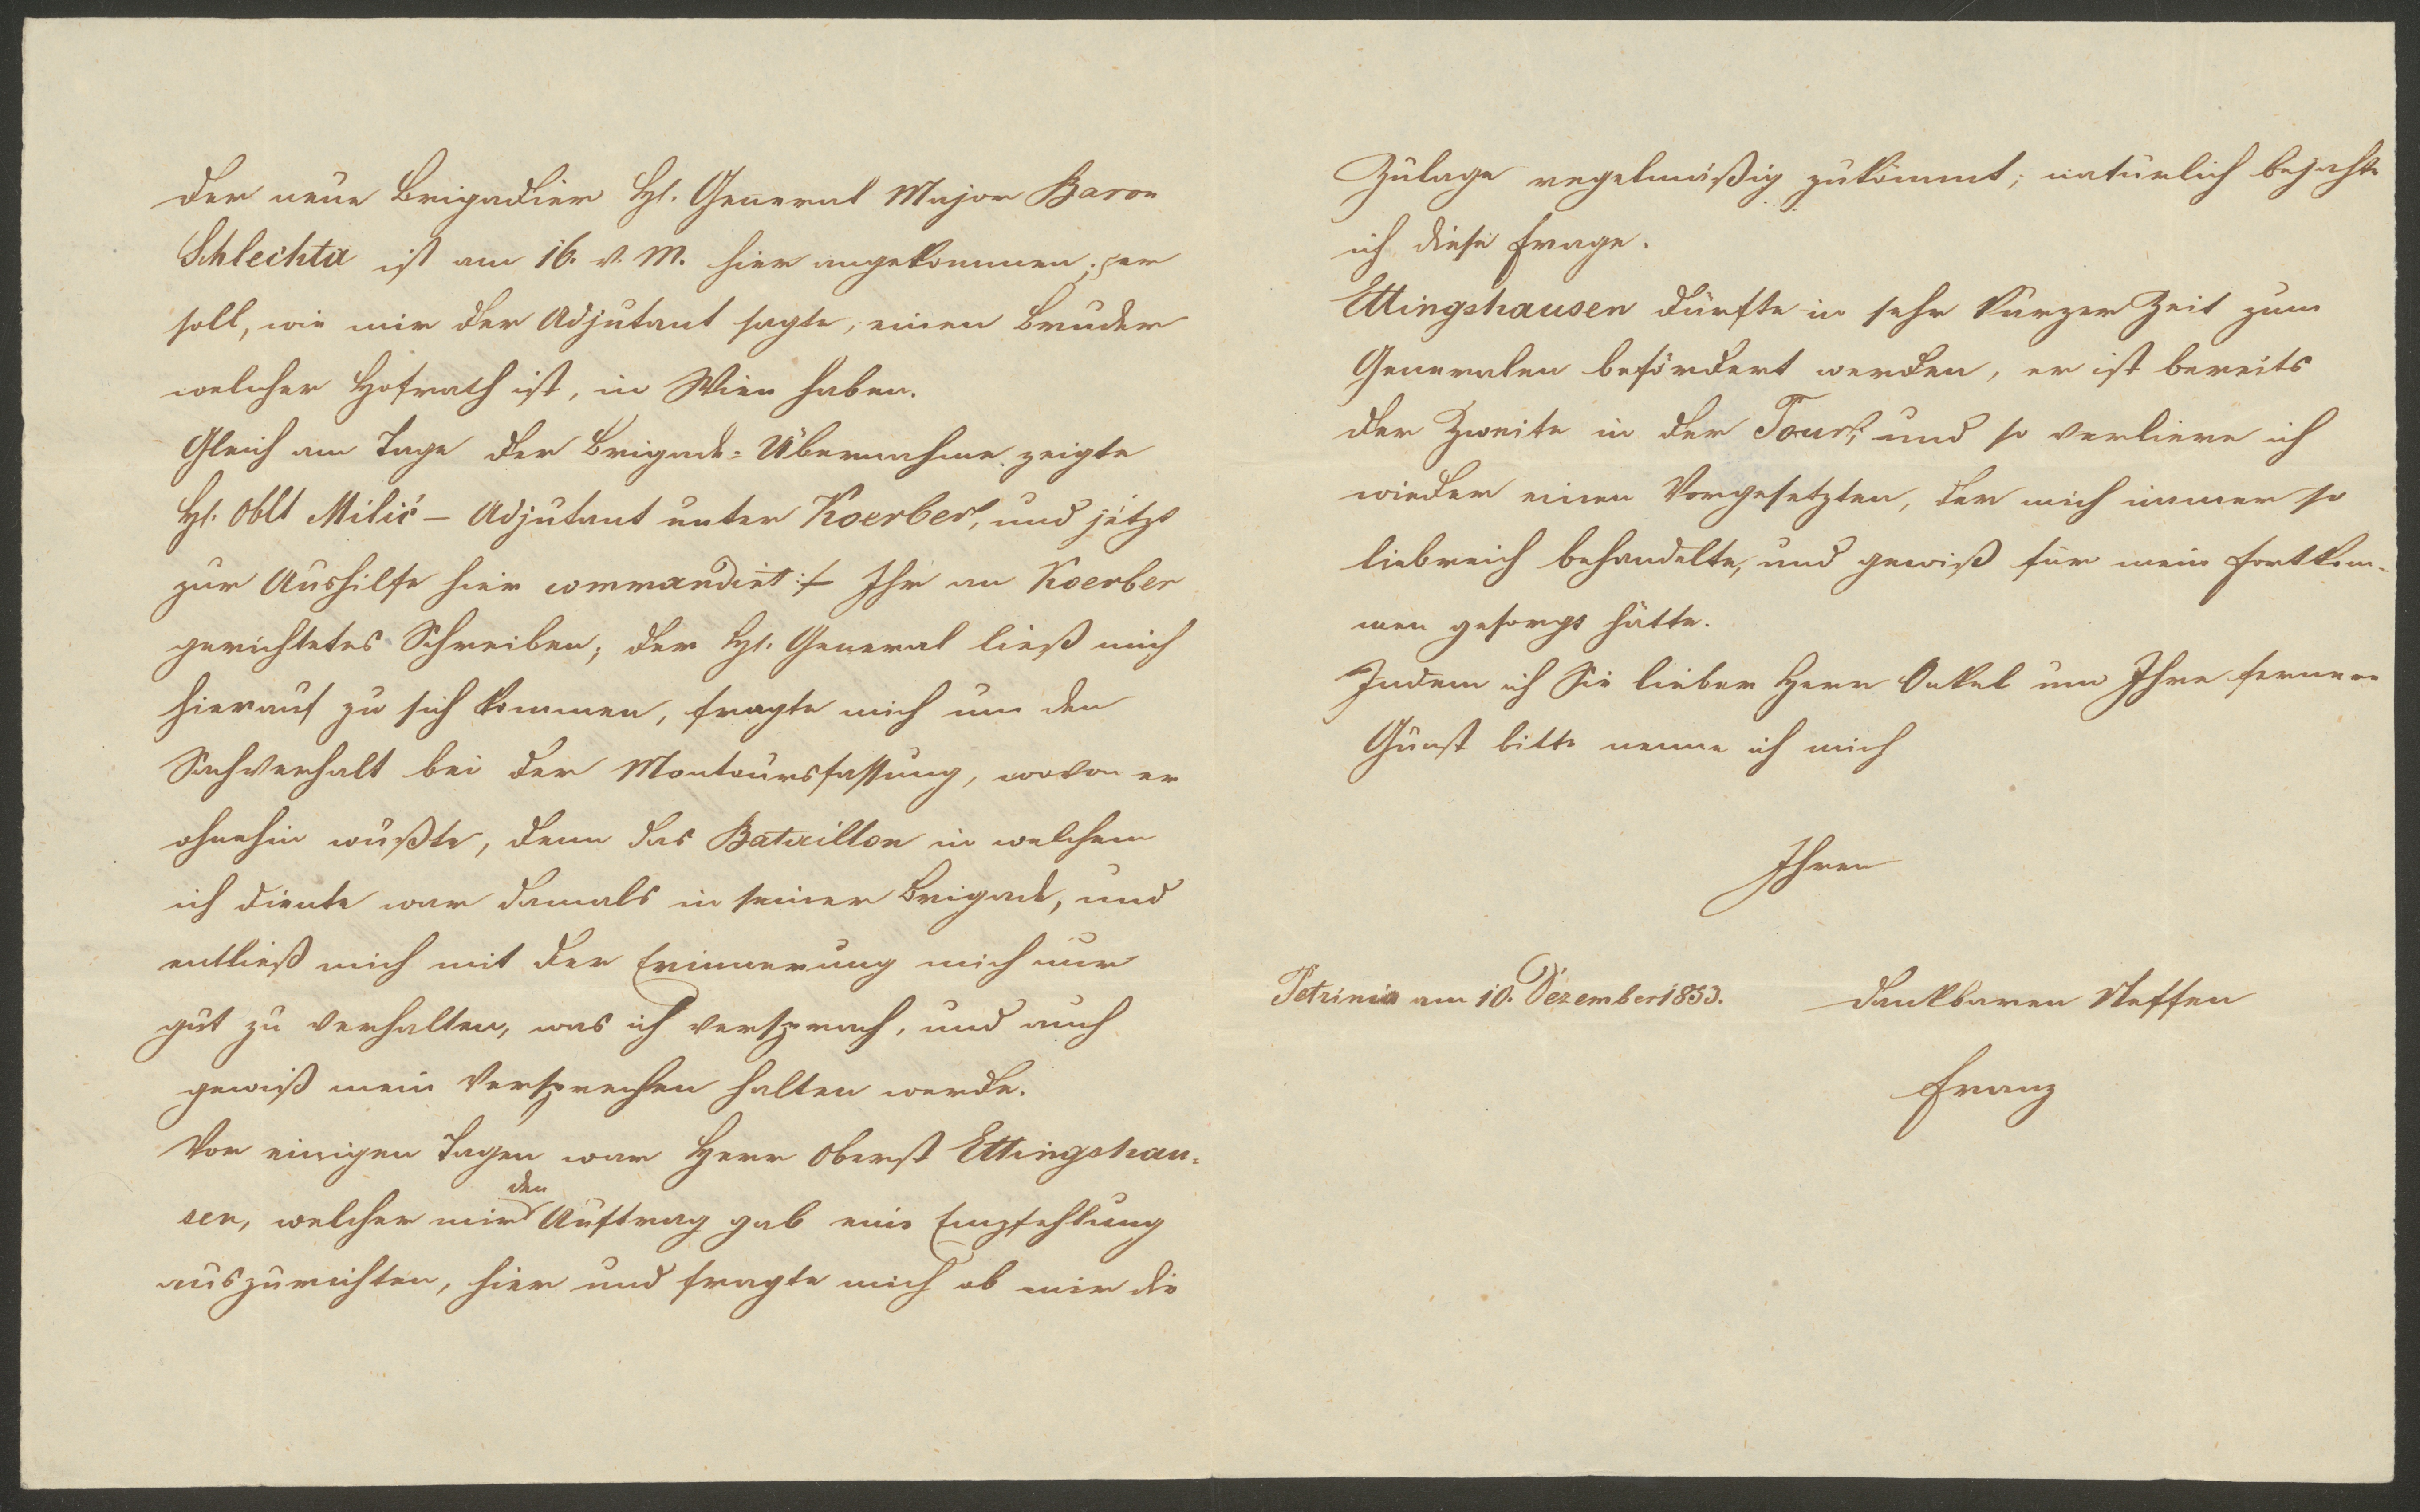 Der neue Brigadier H. General Major Baron
Schlechta ist am 16. v. M. hier angekommen; er
soll, wie mir der Adjutant sagte, einen Bruder
welcher Hofrath ist, in Wien haben.
Gleich am Tage der Brigade-Übernahme zeigte
H. Oblt Milić – Adjutant unter Koerber, und jetzt
zur Aushilfe hier commandirt :/– Ihr an Koerber
gerichtetes Schreiben; der H. General ließ mich
hierauf zu sich kommen, fragte mich um den
Sachverhalt bei der Montoursfassung, wovon er
ohnehin wußte, denn das Bataillon in welchem
ich diente war damals in seiner Brigade, und
entließ mich mit der Erinnerung mich nur
gut zu verhalten, was ich versprach, und auch
gewiß mein Versprechen halten werde.
Vor einigen Tagen war Herr Oberst Ettingshau-
sen, welcher mir den Auftrag gab eine Empfehlung
auszurichten, hier und fragte mich ob mir die
Zulage regelmäßig zukömmt; natürlich bejahte
ich diese Frage.
Ettingshausen dürfte in sehr kurzer Zeit zum
Generalen befördert werden, er ist bereits
der Zweite in der Tour, und so verliere ich
wieder einen Vorgesetzten, der mich immer so
liebreich behandelte, und gewiß für mein Fortkom-
men gesorgt hätte.
Indem ich Sie lieber Herr Onkel um Ihre fernere
Gunst bitte nenne ich mich
Ihren
Petrinia am 10. Dezember 1853. dankbaren Neffen
Franz